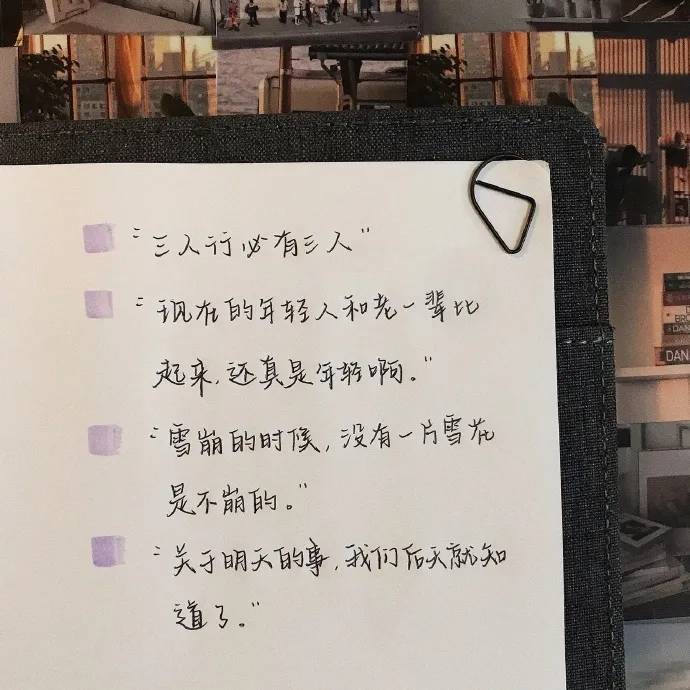 “三人行必有三人”
“现在的年轻人和老一辈比
起来，还真是年轻啊。”
“雪崩的时候，没有一片雪花
是不崩的。”
“关于明天的事，我们后天就知
道了。”
DAN
BRO
DAN
DAN